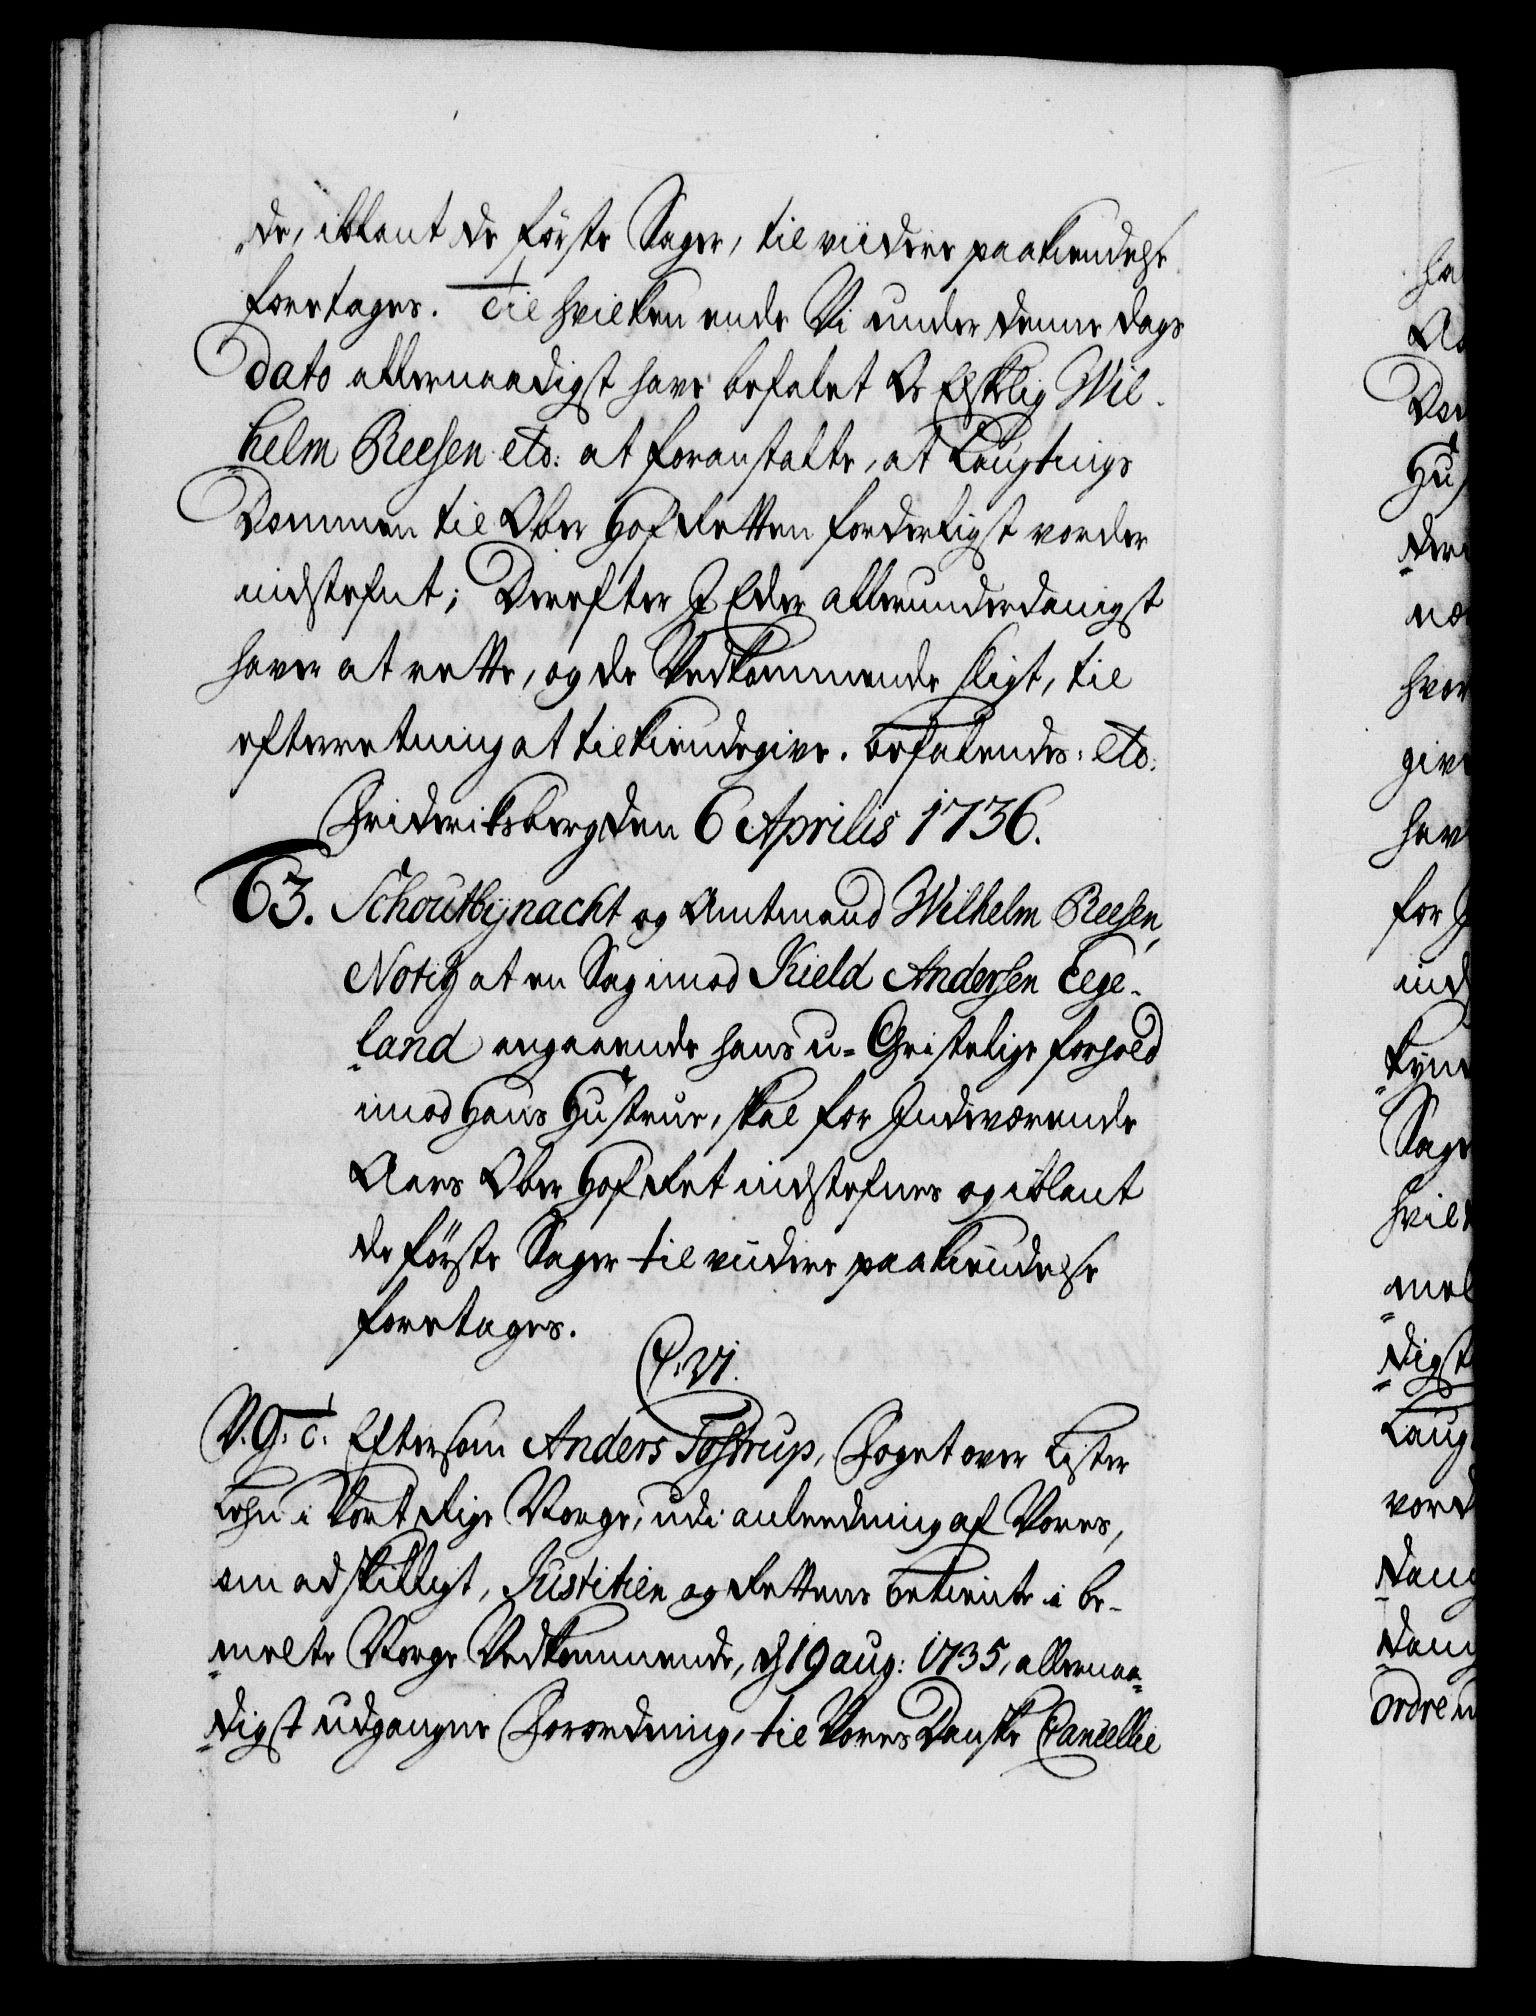 de, iblant de første Sager, til viidere paakiendelse
foretages. Til hvilken ende Vi under denne dags
Dato allernaadigst have befalet Os Elskelig Wil-
helm Reesen etc: at foranstalte, at Laugtings
Dommen til Ober Hof Retten forderligst vorder
indstefnt; Derefter I Eder allerunderdanigst
haver at rette, og de Vedkommende sligt, til
efterretning at tilkiendegive. Befalendes: etc.
Frideriksberg den 6 Aprilis 1736.
63. Schoutbynacht og Amtmand Wilhelm Reesen,
Notits at en Sag imod Kield Andersen Tege-
land angaaende hans u-Christelige forhold
imod Hans Hustrue, skal for Indeværende
Aars Ober Hof Ret indstefnes og iblant
de første Sager til viidere paakiendelse
foretages.
C. VI.
V. G. T. Eftersom Anders Tostrup, Foget over Lister
Lehn i Vort Rige Norge, udi anledning af Vores,
om adskilligt, Justitien og Rettens betiente i be-
melte Norge Vedkommende, d 19 aug: 1735, allernaa-
digst udgangne Forordning, til Vores Danske Cancellie